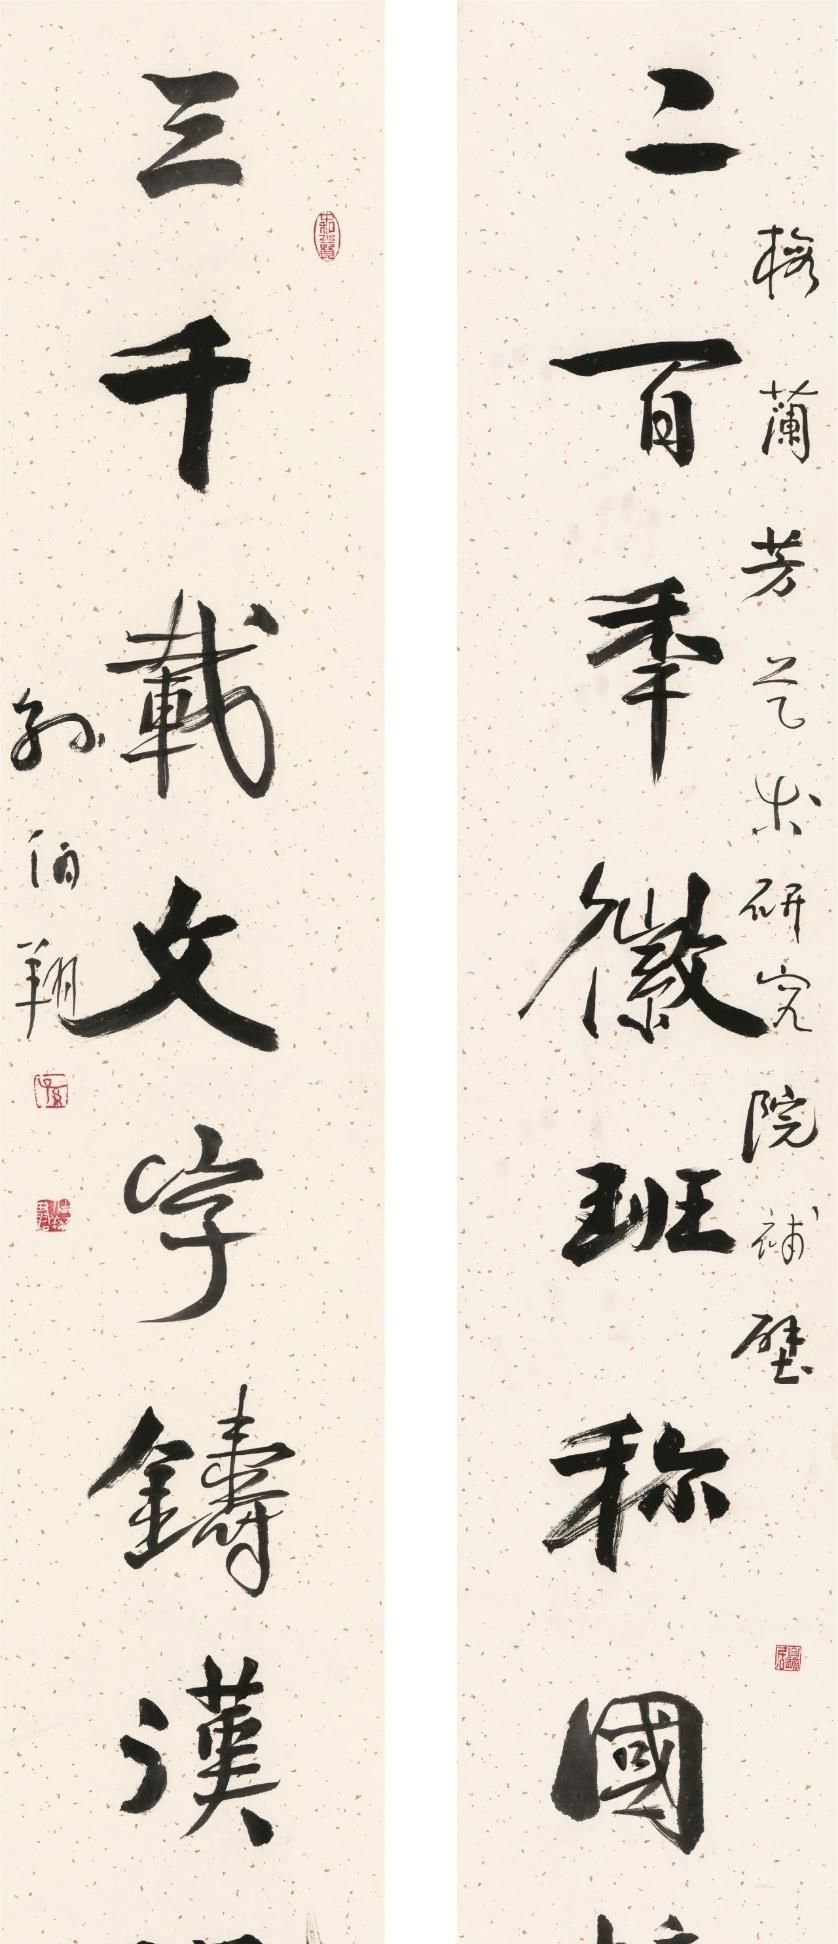 梅蘭芳艺术研究院補壁
二百秊徽班称國
三千載文字鑄漢
孫伯翔